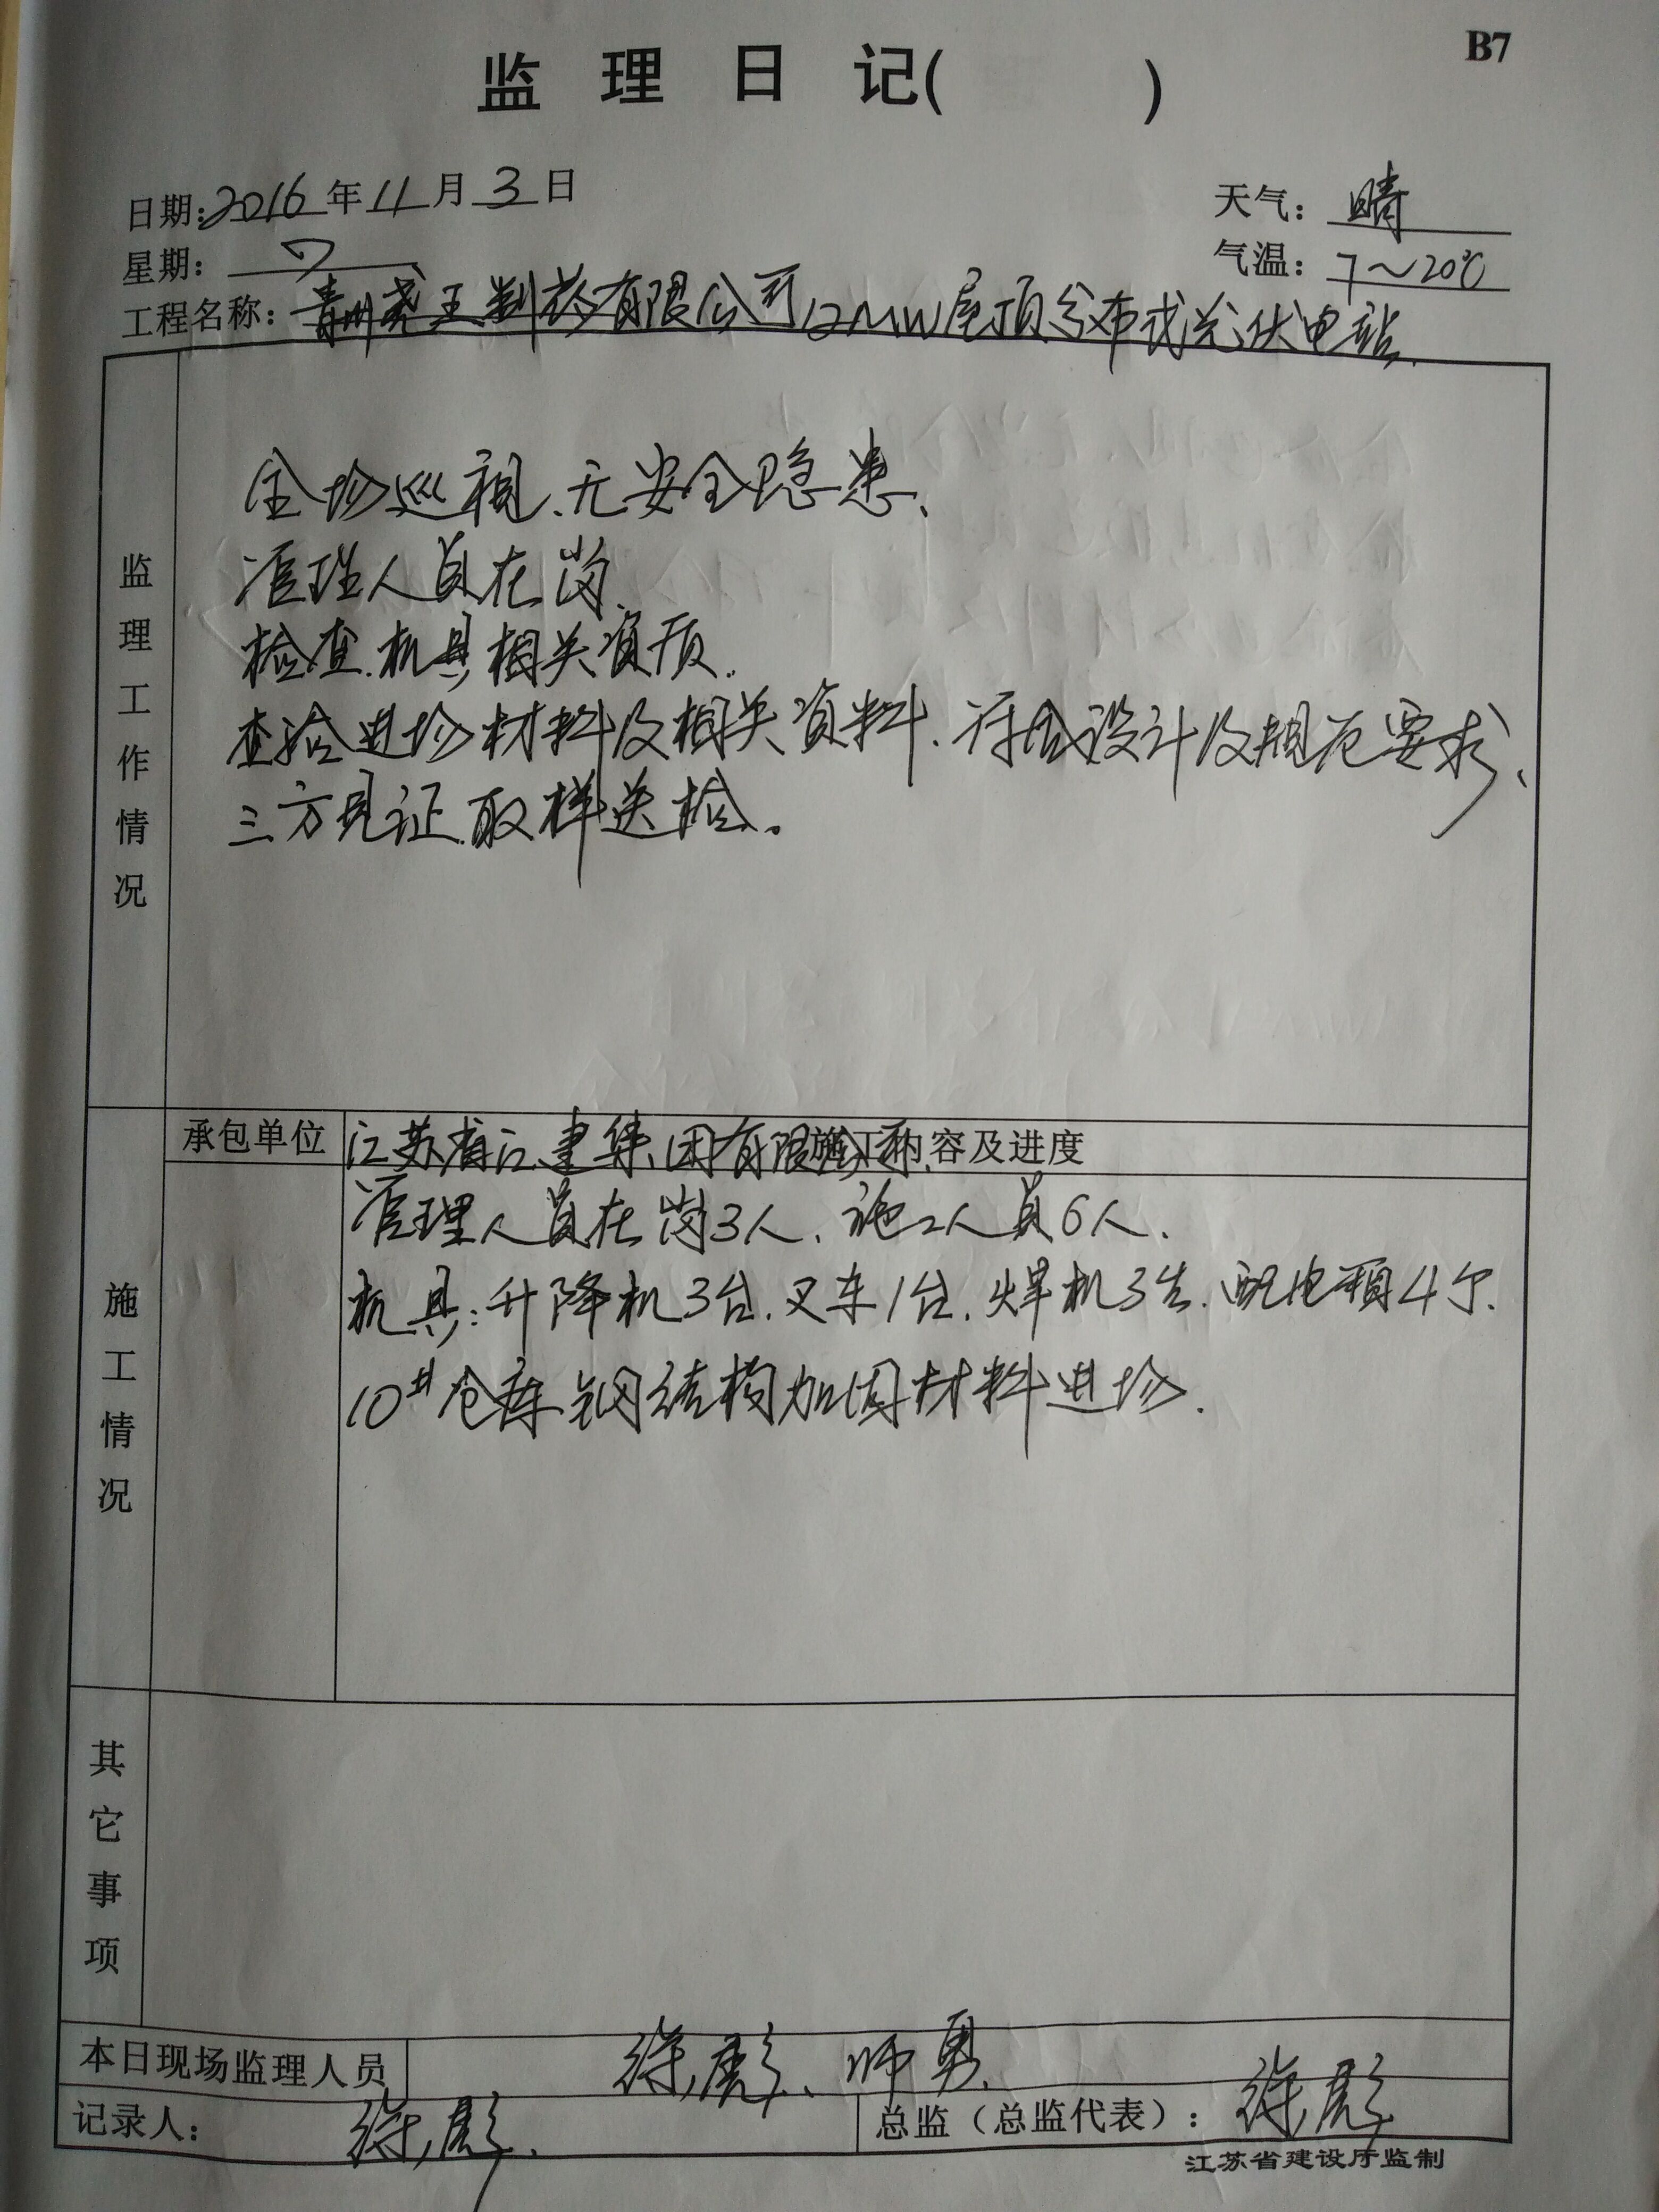 B7
监理日记( )
日期:2016年11月3日
天气: 晴
星期:
气温: 7~20℃
工程名称: 青州尧王制药有限公司12MW屋顶分布式光伏电站.
监理工作情况
全场巡视、无安全隐患、
管理人员在岗、
检查.机具相关资质.
查验进场材料及相关资料、符合设计及规范要求、
三方见证取样送检。
施工情况
承包单位
施工内容及进度
江苏省江建集团有限公司.
管理人员在岗3人、施工人员6人.
机具:升降机3台.叉车1台.焊机3台.配电箱4个.
10#仓库钢结构加固材料进场.
其它事项
本日现场监理人员 徐彪、师勇
记录人: 徐彪.
总监(总监代表): 徐彪
江苏省建设厅监制